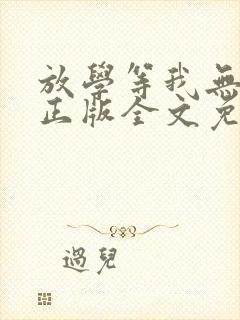 放學等我無
正版全文免
過兒